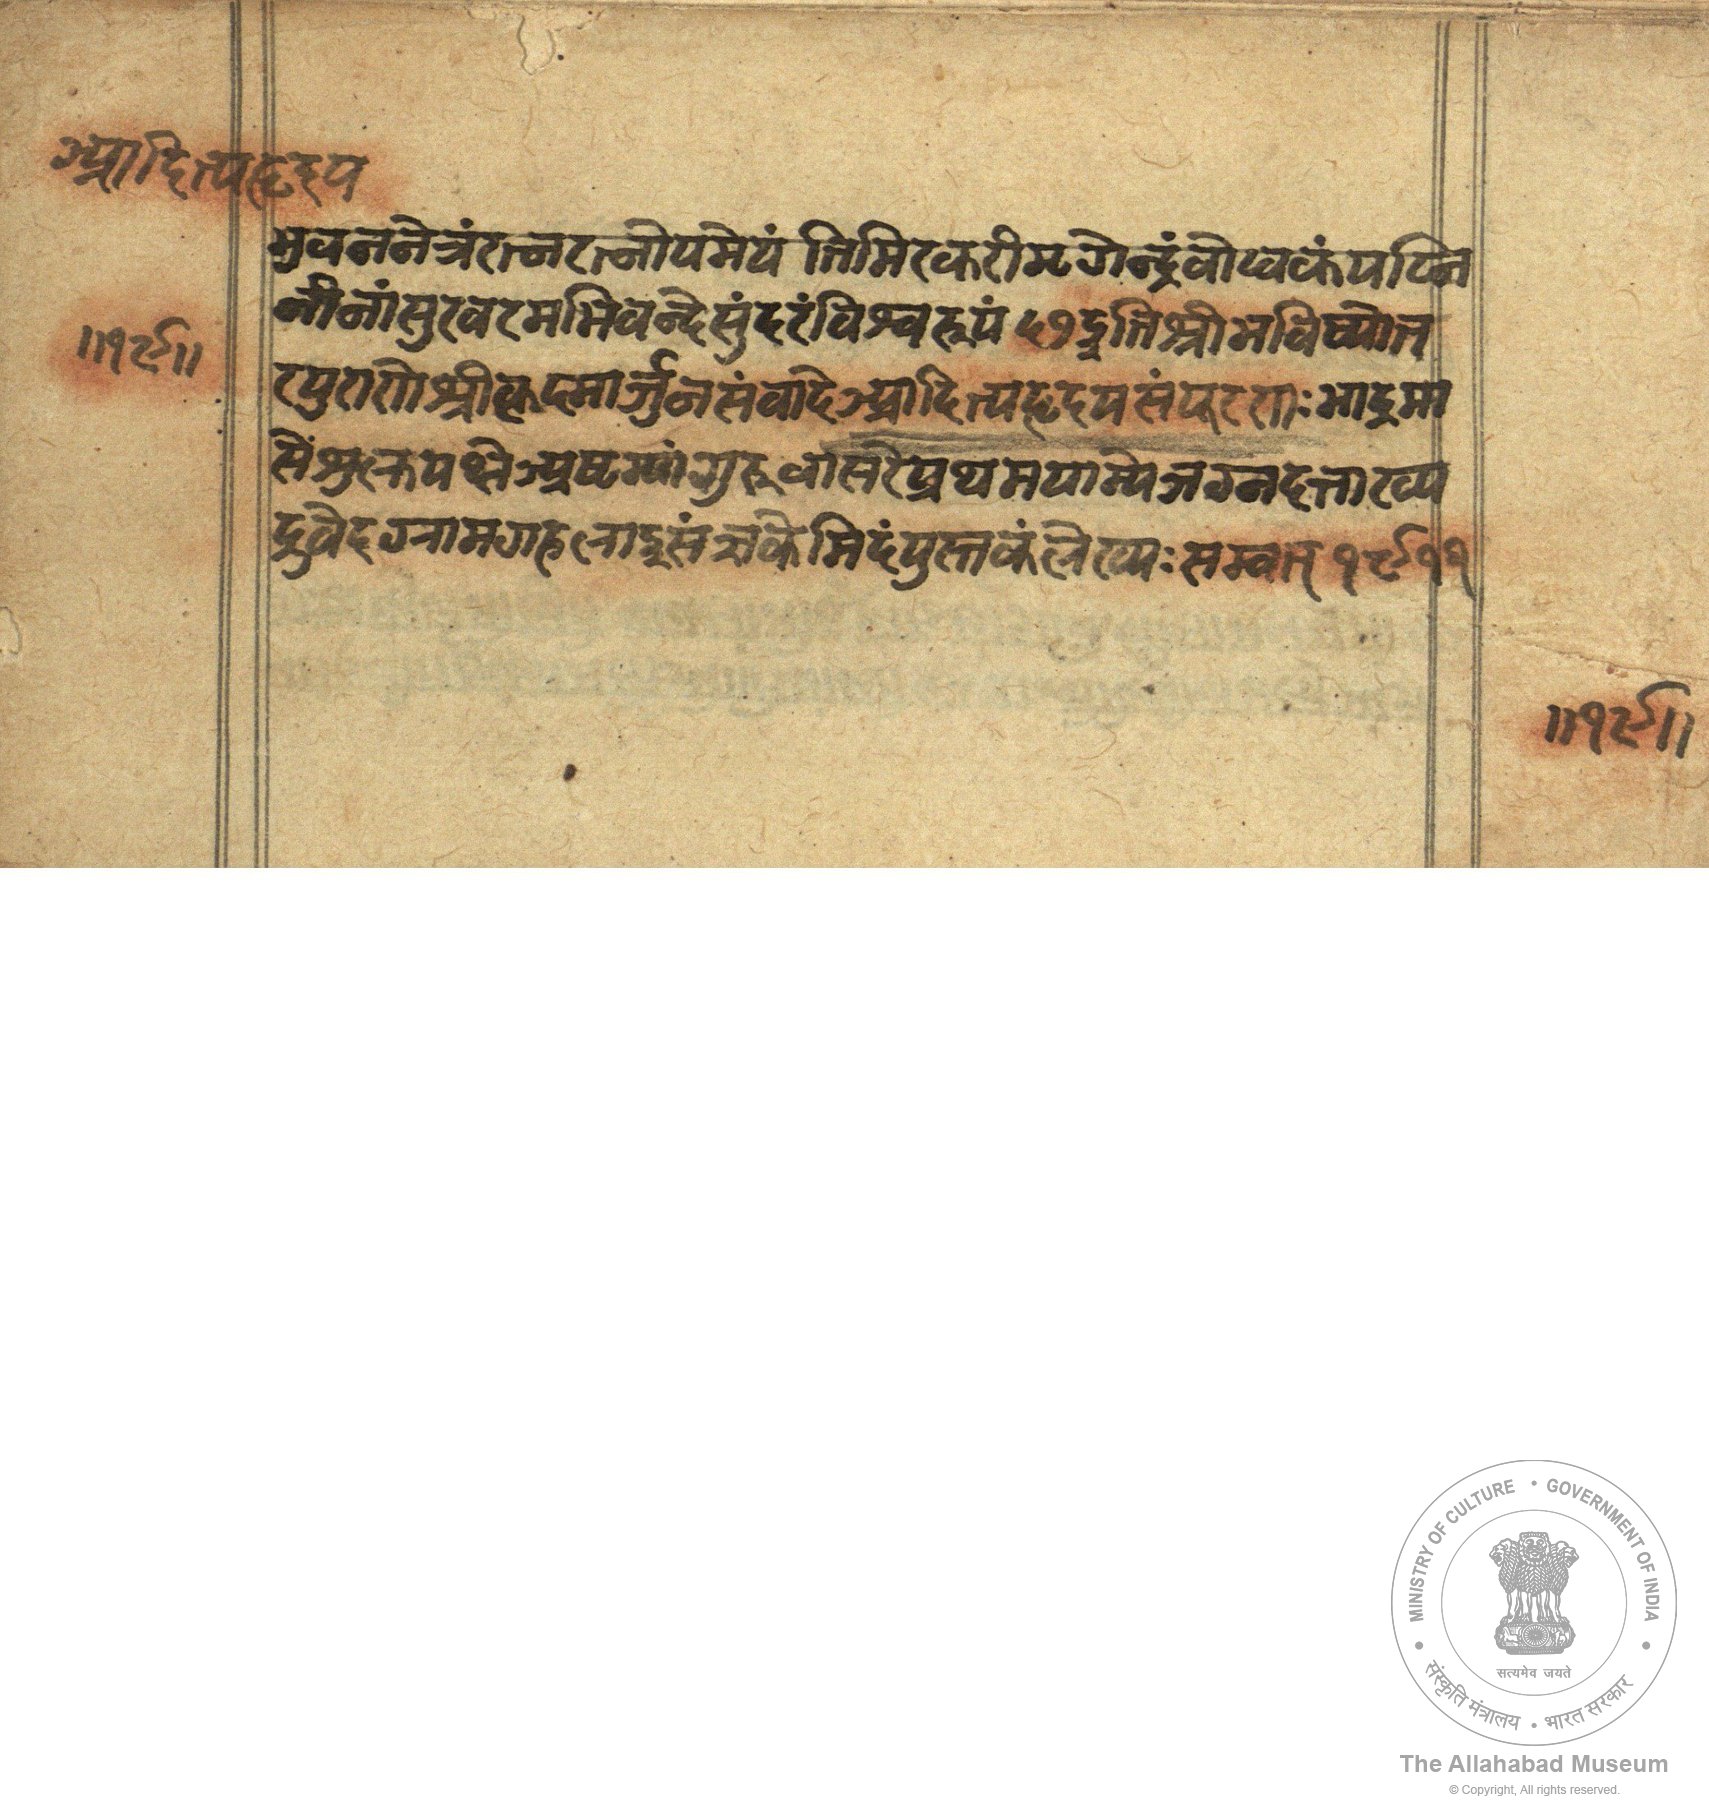 आदित्यहृदय
भुवननेत्रंरात्नरात्नोपमेयं तिमिरकरीमृगेन्द्रंवोध्वकंपद्मि
नीनांसुरवरमभिवन्देसुंदरंविश्वरूपं ८७इतिश्रीभविष्योत्त
॥१९॥
रपुराणेश्रीकृष्णार्जुनसंवादेआदित्यहृदयसंपूरणः भाद्रमा
सेशुक्लपक्षेअष्टम्यांगुरूवासरेप्रथमयाम्ये
पुस्तकं सम्वत् १९११
॥१९॥
MINISTRY OF CULTURE • GOVERNMENT OF INDIA
सत्यमेव जयते
संस्कृति मंत्रालय • भारत सरकार
The Allahabad Museum
© Copyright, All rights reserved.